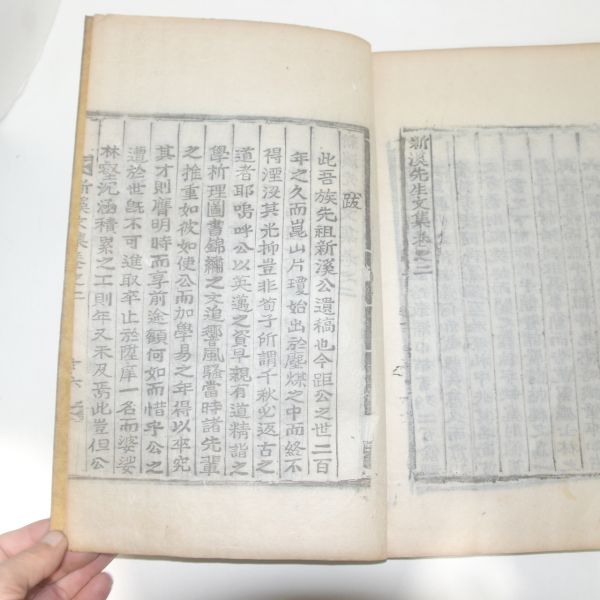 新溪先生文集卷之二
跋
此吾族先祖新溪公遺稿也今距公之世二百
年之久而崑山片瓊始出於塵煤之中而終不
得湮沒其光抑豈非荀子所謂千秋必返古之
道者耶嗚呼公以英邁之資早親有道精詣之
學析理圖書錦繡之文追響風騷當時諸先輩
之推重如彼如使公而加學易之年得以卒究
其才則膺明時而享前途顧何如而惜乎公之
遭於世旣不可進取卒止於薩摩一名而婆娑
林壑沉涵積累之工則年又未及焉此豈但公
新溪文集卷之二
十六